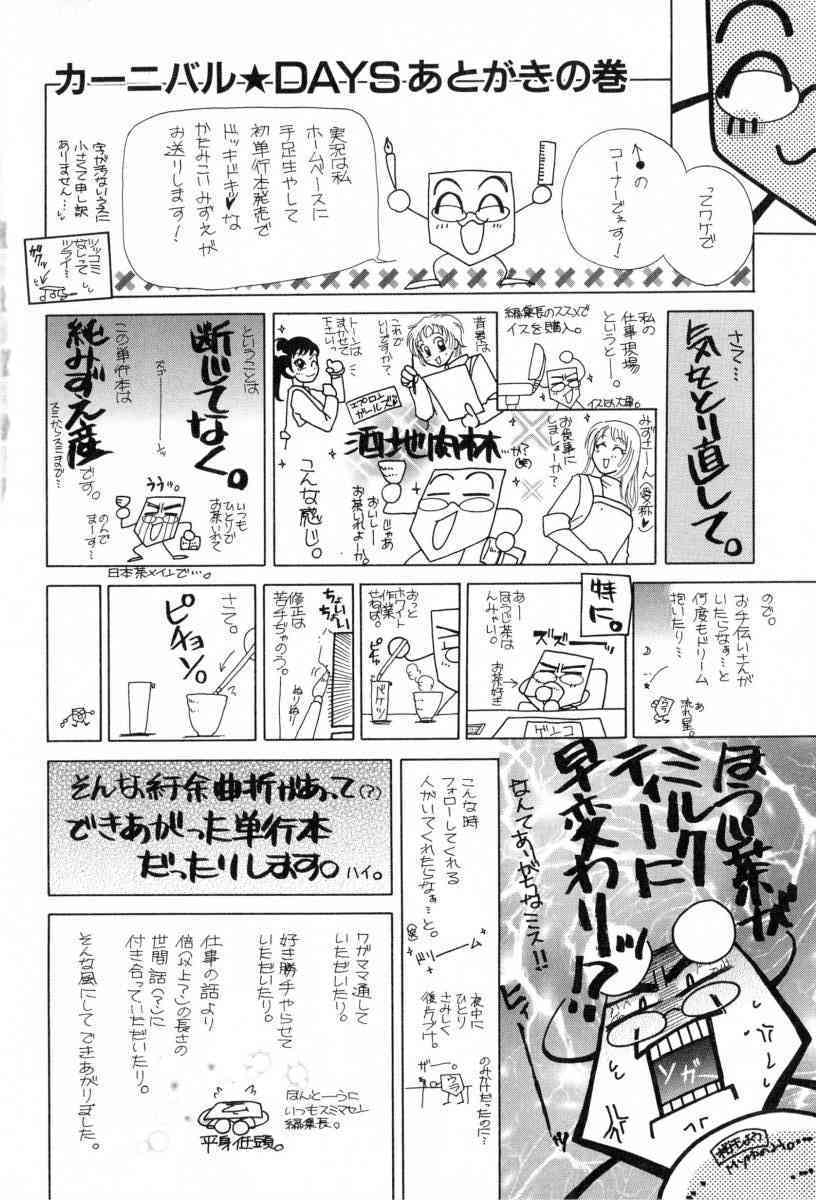 カーニバル★DAYSあとがきの巻
ってワケで
↑の
コーナーでぇす!
実況は私
ホームベースに
手足生やして
初単行本発売で
ドッキドキ♥な
かたみこいみずえが
お送りします!
字が汚ないうえに
小さくて申し訳
ありません…
ツッコミ
なしって
ツライ…
ガクッ
さて…
気をとり直して。
私の
仕事現場
というとー。
編集長のススメで
イスを購入。
イスは大事。
背景は
これで
いいですか?
トーンは
まかせて
下さいっ
エプロン
ガールズ♥
みずさーん(愛称♥)
お食事に
しましょーか?
酒池肉林
…か?
じゃあ
おいしー
お茶いれよーか。
こんな感じ。
ということは
断じてなく。
この単行本は
純みずえ産
です。
スミからスミまで…
うぅっ。
いつも
ひとりで
お茶いれて
のんで
まーす…
日本茶メインで…。
ので。
お手伝いさんが
いたらなぁ…と
何度もドリーム
抱いたり…
あ
流れ星。
特に。
ズズーーッ
あー
ほうじ茶は
んみゃい。
お茶好き
おっと
ホワイト
作業
せねば。
ピチャ
バケツ
ちょい
ちょい
修正は
苦手ぢゃのう。
ぬりぬり
さて。
ピチョン。
ほうじ茶が
ミルク
ティーに
早変わりッ!?
なんてありがちなミス!!
ヒィ
ソガー
こんな時
フォローしてくれる
人がいてくれたらなぁ…と。
ドリーーム
夜中に
ひとり
さみしく
後片づけ。
ザー。
のみかけだったのに…
そんな紆余曲折があって(?)
できあがった単行本
だったりします。ハイ。
ワガママ通して
いただいたり。
好き勝手やらせて
いただいたり。
仕事の話より
倍(以上?)の長さの
世間話(?)に
付き合っていただいたり。
そんな風にしてできあがりました。
ほんとーうに
いつもスミマセン
編集長。
平身低頭。